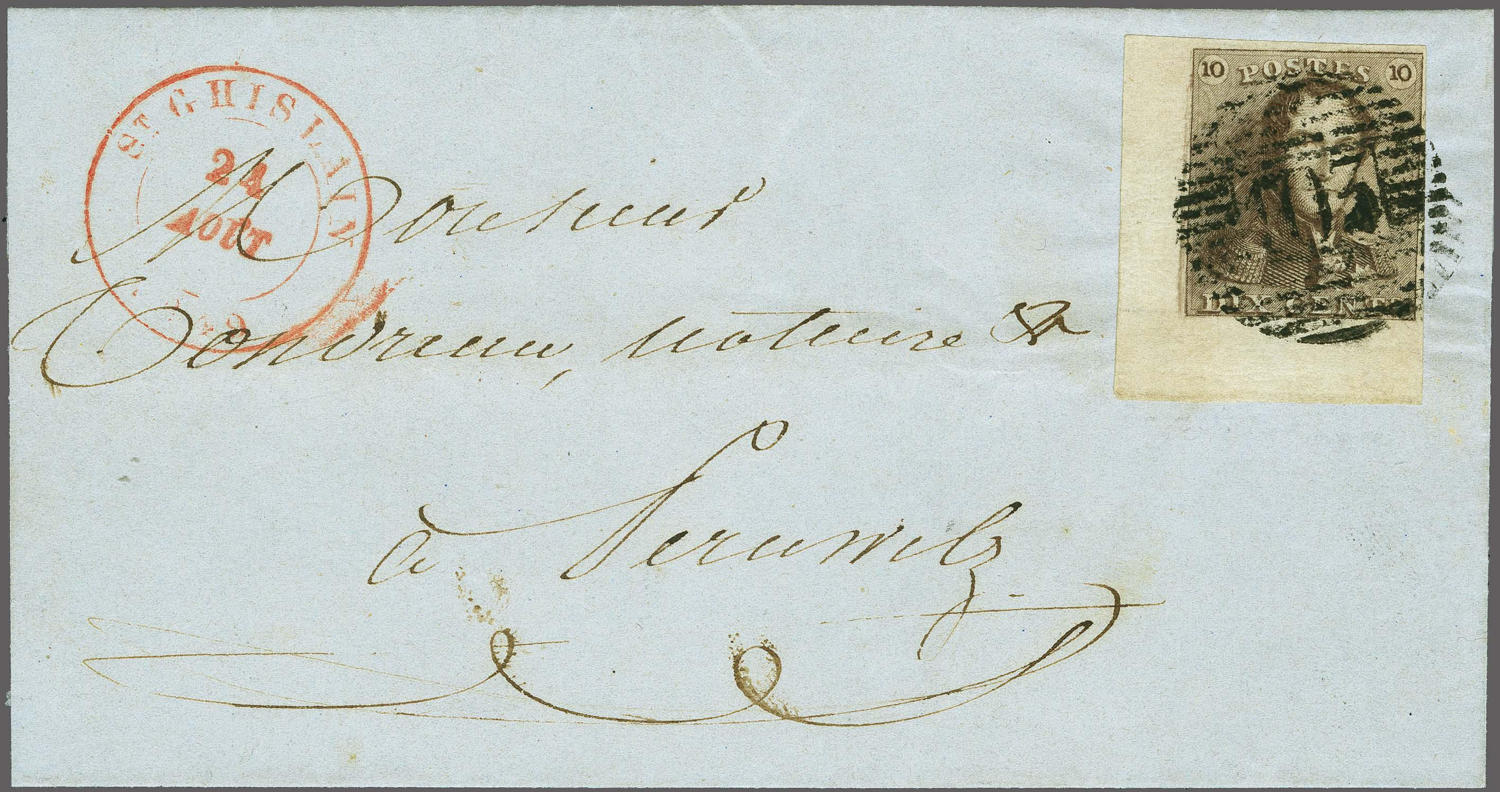 ST GHISLAIN
24
AOUT
10 POSTES 10
DIX CENTS
Monsieur
notaire &
à Peruwelz